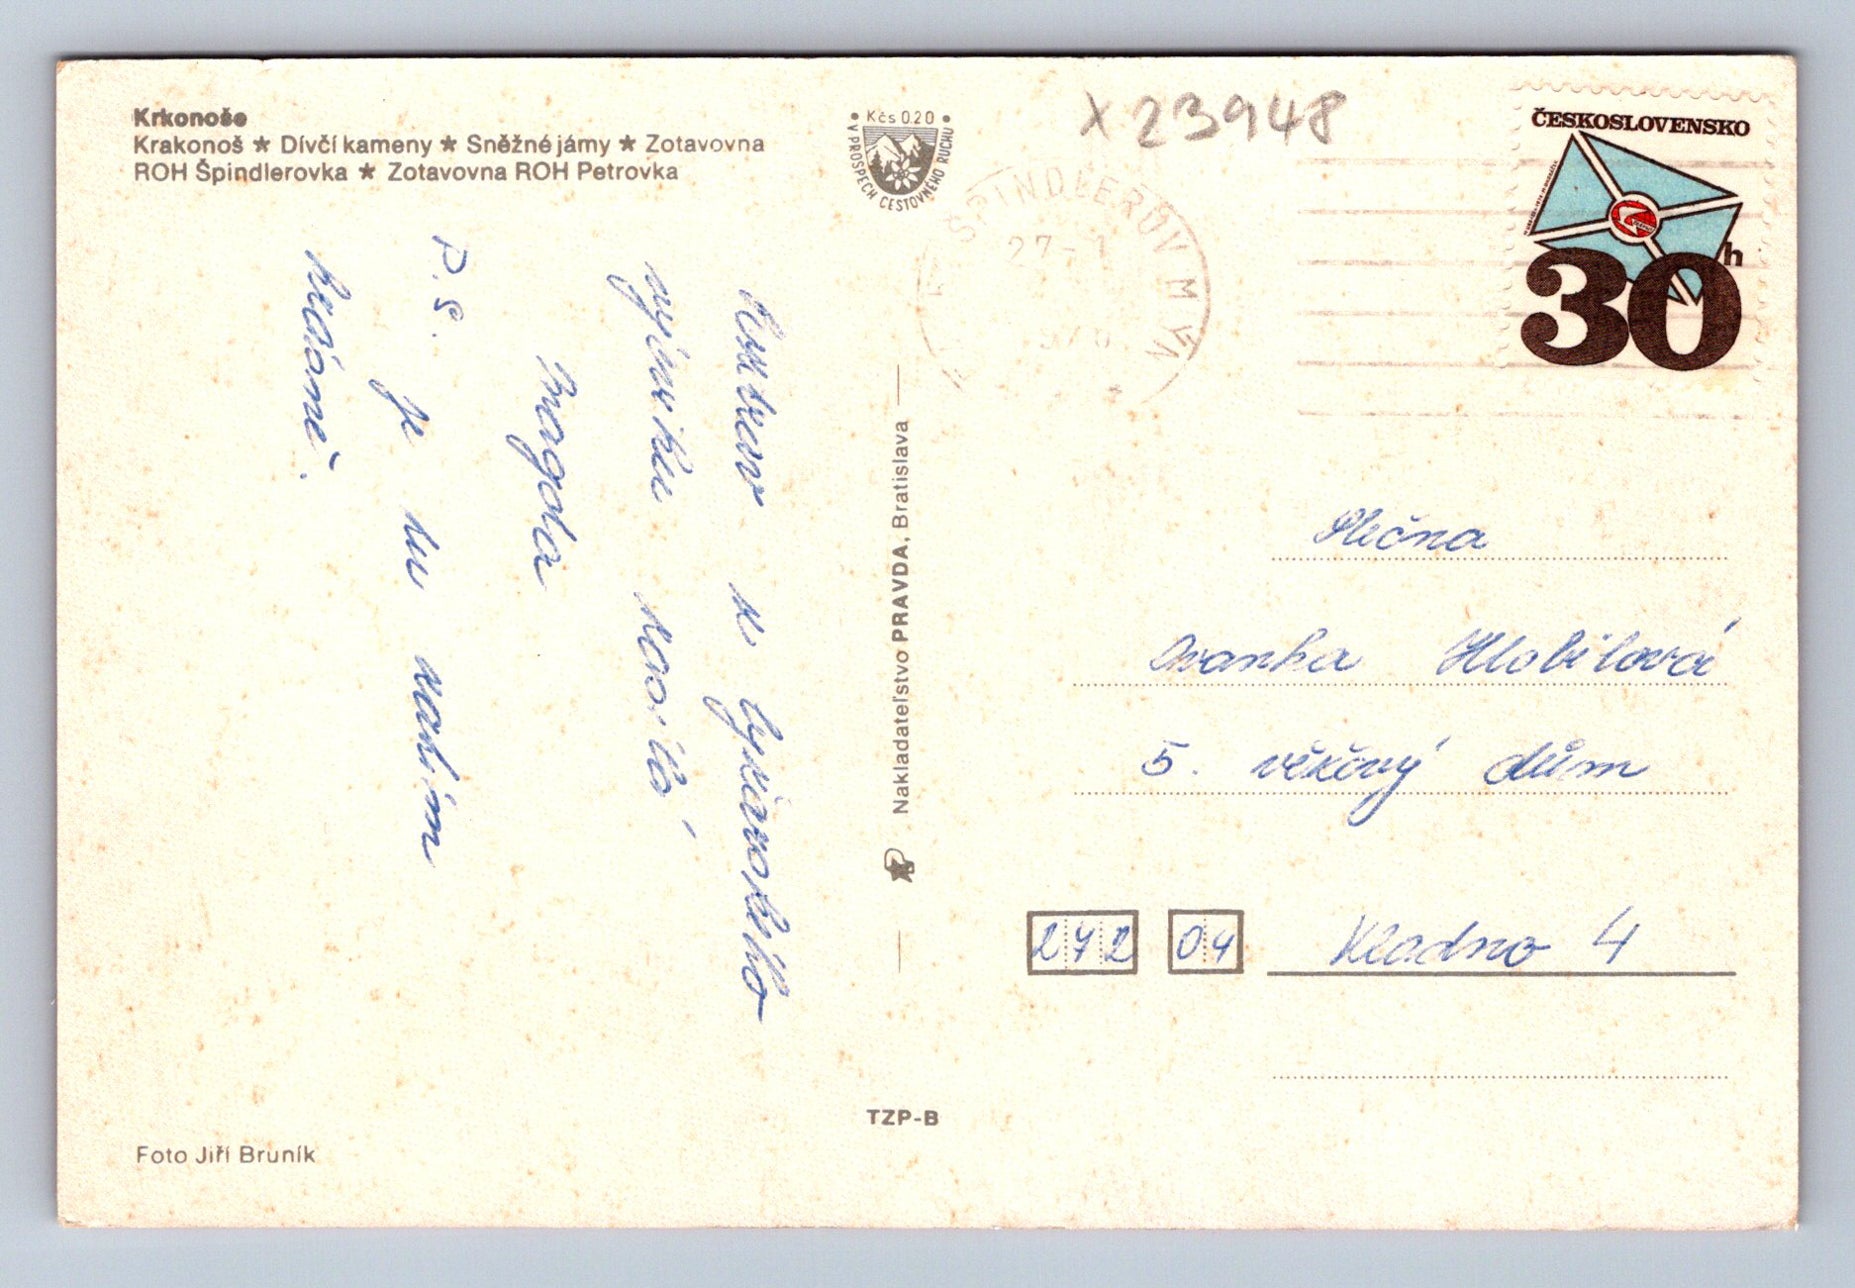 Krkonoše
Krakonoš ★ Dívčí kameny ★ Sněžné jámy ★ Zotavovna
ROH Špindlerovka ★ Zotavovna ROH Petrovka
Kčs 0.20
V PROSPECH CESTOVNÉHO RUCHU
X 23948
ŠPINDLERŮV MLÝN
27-7
ČESKOSLOVENSKO
30 h
z lyžařského
výcviku zasílá
Magda
P.S. je tu
krásně.
Nakladateľstvo PRAVDA, Bratislava
Slečna
Ivanka Hlobilová
5. věžový dům
272 04 Kladno 4
TZP-B
Foto Jiří Bruník